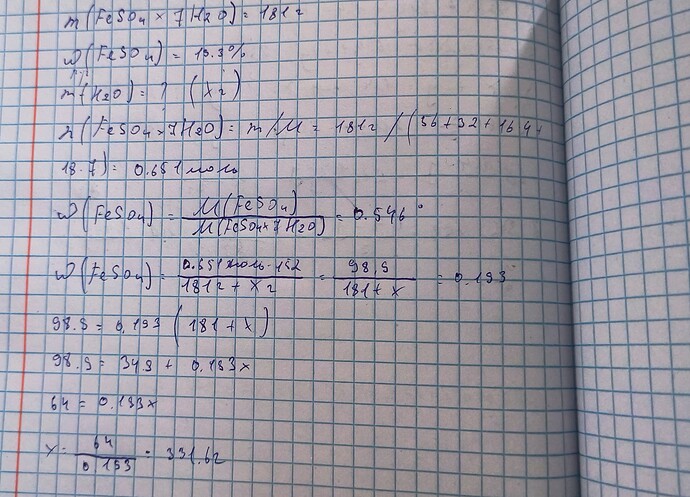 m(FeSO₄ × 7H₂O) = 181 г
ω(FeSO₄) = 19.3%
m(H₂O) = ? (x г)
n(FeSO₄×7H₂O) = m/M = 181 г / (56+32+16·4+
18·7) = 0.651 моль
ω(FeSO₄) = M(FeSO₄) / M(FeSO₄×7H₂O) = 0.546
ω(FeSO₄) = 0.651 моль·152 / 181 г + x г = 98.9 / 181 + x = 0.193
98.9 = 0.193 (181 + x)
98.9 = 34.9 + 0.193x
64 = 0.193x
x = 64 / 0.193 = 331.6 г